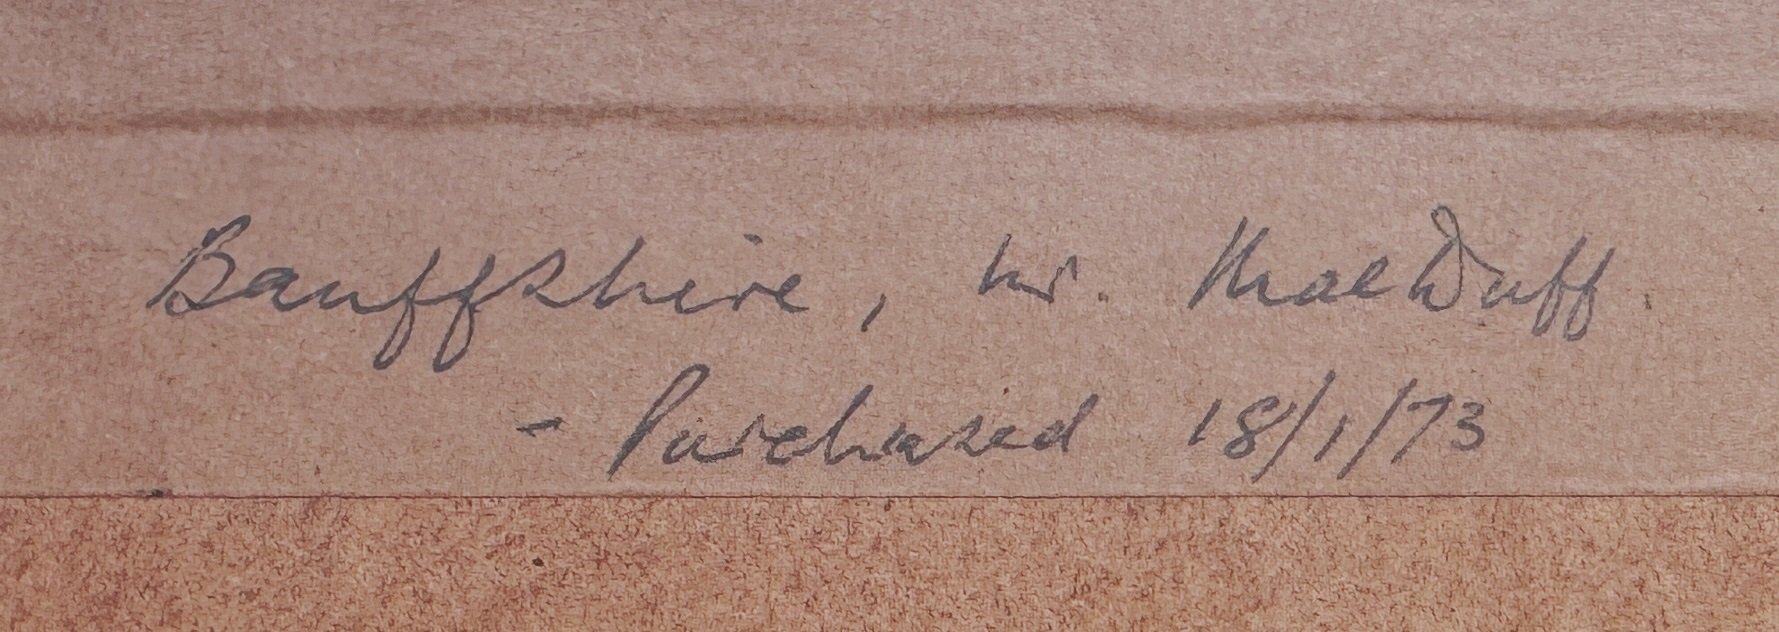 Banffshire, nr. MacDuff.
- Purchased 18/1/73